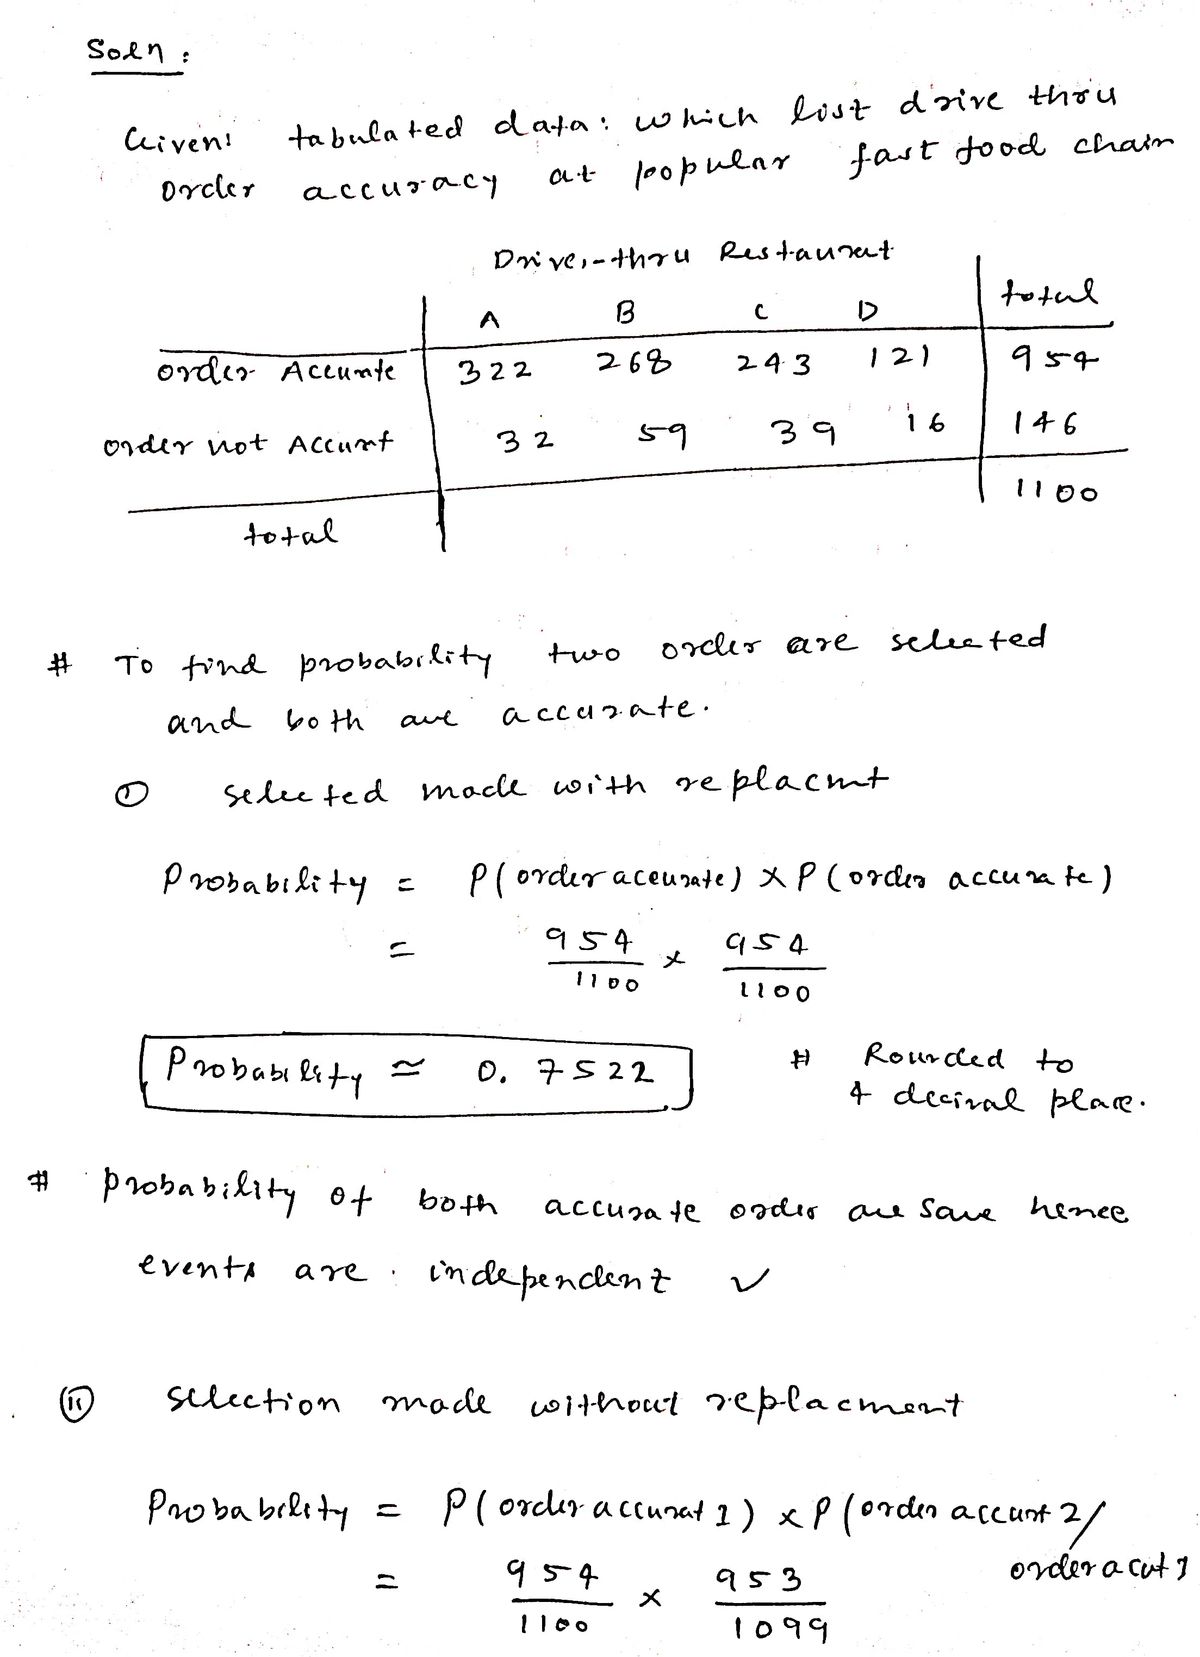 Soln :
Given: tabulated data: which list drive thru
order accuracy at popular fast food chain
Drive-thru Restaurat
A B C D total
order Accurate 322 268 243 121 954
order not Accurat 32 59 39 16 146
1100
total
# To find probability two order are selected
and both are accurate.
① selected made with replacmt
Probability = P(order accurate) × P(order accurate)
= 954/1100 × 954/1100
Probability ≃ 0.7522 # Rounded to
4 decimal place.
# probability of both accurate order are same hence
events are independent ✓
(ii) selection made without replacment
Probability = P(order accurat 1) × P(order accurt 2/
order acut 1
= 954/1100 × 953/1099